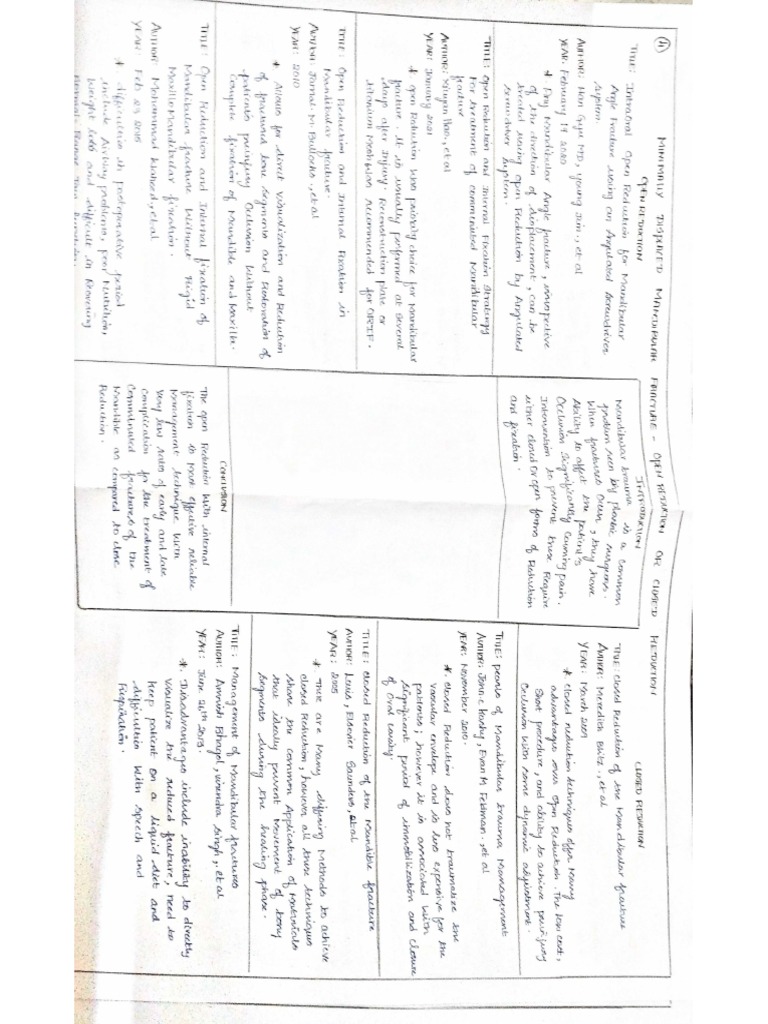 4
MINIMALLY DISPLACED MANDIBULAR FRACTURE - OPEN REDUCTION OR CLOSED REDUCTION
OPEN REDUCTION
TITLE: Intraoral Open Reduction for Mandibular
Angle Fracture using an Angulated Screwdriver
System.
AUTHOR: Han Gyu MD, Young Jin., et al
YEAR: February 19 2020
* Any Mandibular Angle fracture, irrespective
of the direction of displacement, can be
treated using Open Reduction by Angulated
Screwdriver System.
TITLE: Open Reduction and Internal Fixation Strategy
For treatment of comminuted Mandibular
fracture
AUTHOR: Hao., et al
YEAR: January 2021
* Open Reduction was priority choice for Mandibular
fracture. It is usually performed at Several
days after Injury. Reconstruction plate or
titanium Mesh was recommended for ORIF.
TITLE: Open Reduction and Internal Fixation in
Mandibular fracture.
AUTHOR: Jamal M. Bullocks., et al
YEAR: 2010
* Allows for direct visualization and Reduction
of fractured bone Segments and Restoration of
patients preinjury Occlusion without
Complete fixation of Mandible and Maxilla.
TITLE: Open Reduction and Internal fixation of
Mandibular fracture without Rigid
Maxillomandibular fixation.
AUTHOR: Mohammad Waheed, et al.
YEAR: Feb 23 2015
* difficulties in postoperative period
include Airway problems, poor Nutrition,
weight loss and difficult in Resuming
Normal Range
INTRODUCTION
Mandibular trauma is a common
problem seen by plastic surgeons.
When fractures Occur, they have
Ability to affect the patient's
Occlusion Significantly causing pain.
Intervention to prevent these Require
either closed or open forms of Reduction
and fixation.
CONCLUSION
The open Reduction with internal
fixation is most effective reliable
Management technique with
very few rates of early and late
complication for the treatment of
Comminuted fractures of the
Mandible as compared to close
Reduction.
CLOSED REDUCTION
TITLE: Closed Reduction of the Mandibular fracture
AUTHOR: Meredith Blitz., et al
YEAR: March 2009
* Closed reduction techniques offer Many
advantages over Open Reduction. The low cost,
Short procedure, and ability to achieve preinjury
Occlusion with some dynamic adjustment.
TITLE: pearls of Mandibular trauma Management
AUTHOR: John C Koshy, Evan M Feldman., et al
YEAR: November 2010.
* Closed Reduction does not traumatize the
vascular envelope and is less expensive for the
patients; however it is associated with
Significant period of immobilization and closure
of Oral Cavity
TITLE: Closed Reduction of the Mandible fracture
AUTHOR: Louis, Elsevier Saunders, et al
YEAR: 2005
* There are Many differing Methods to achieve
closed Reduction, however all these techniques
share the common Application of Materials
that ideally prevent Movement of bony
Segments during the healing phase.
TITLE: Management of Mandibular fractures
AUTHOR: Amrish Bhagol, Virendra Singh., et al
YEAR: June 26th 2013.
* Disadvantages include inability to directly
visualize the reduced fracture, need to
keep patient on a liquid diet and
difficulties with speech and
Respiration.